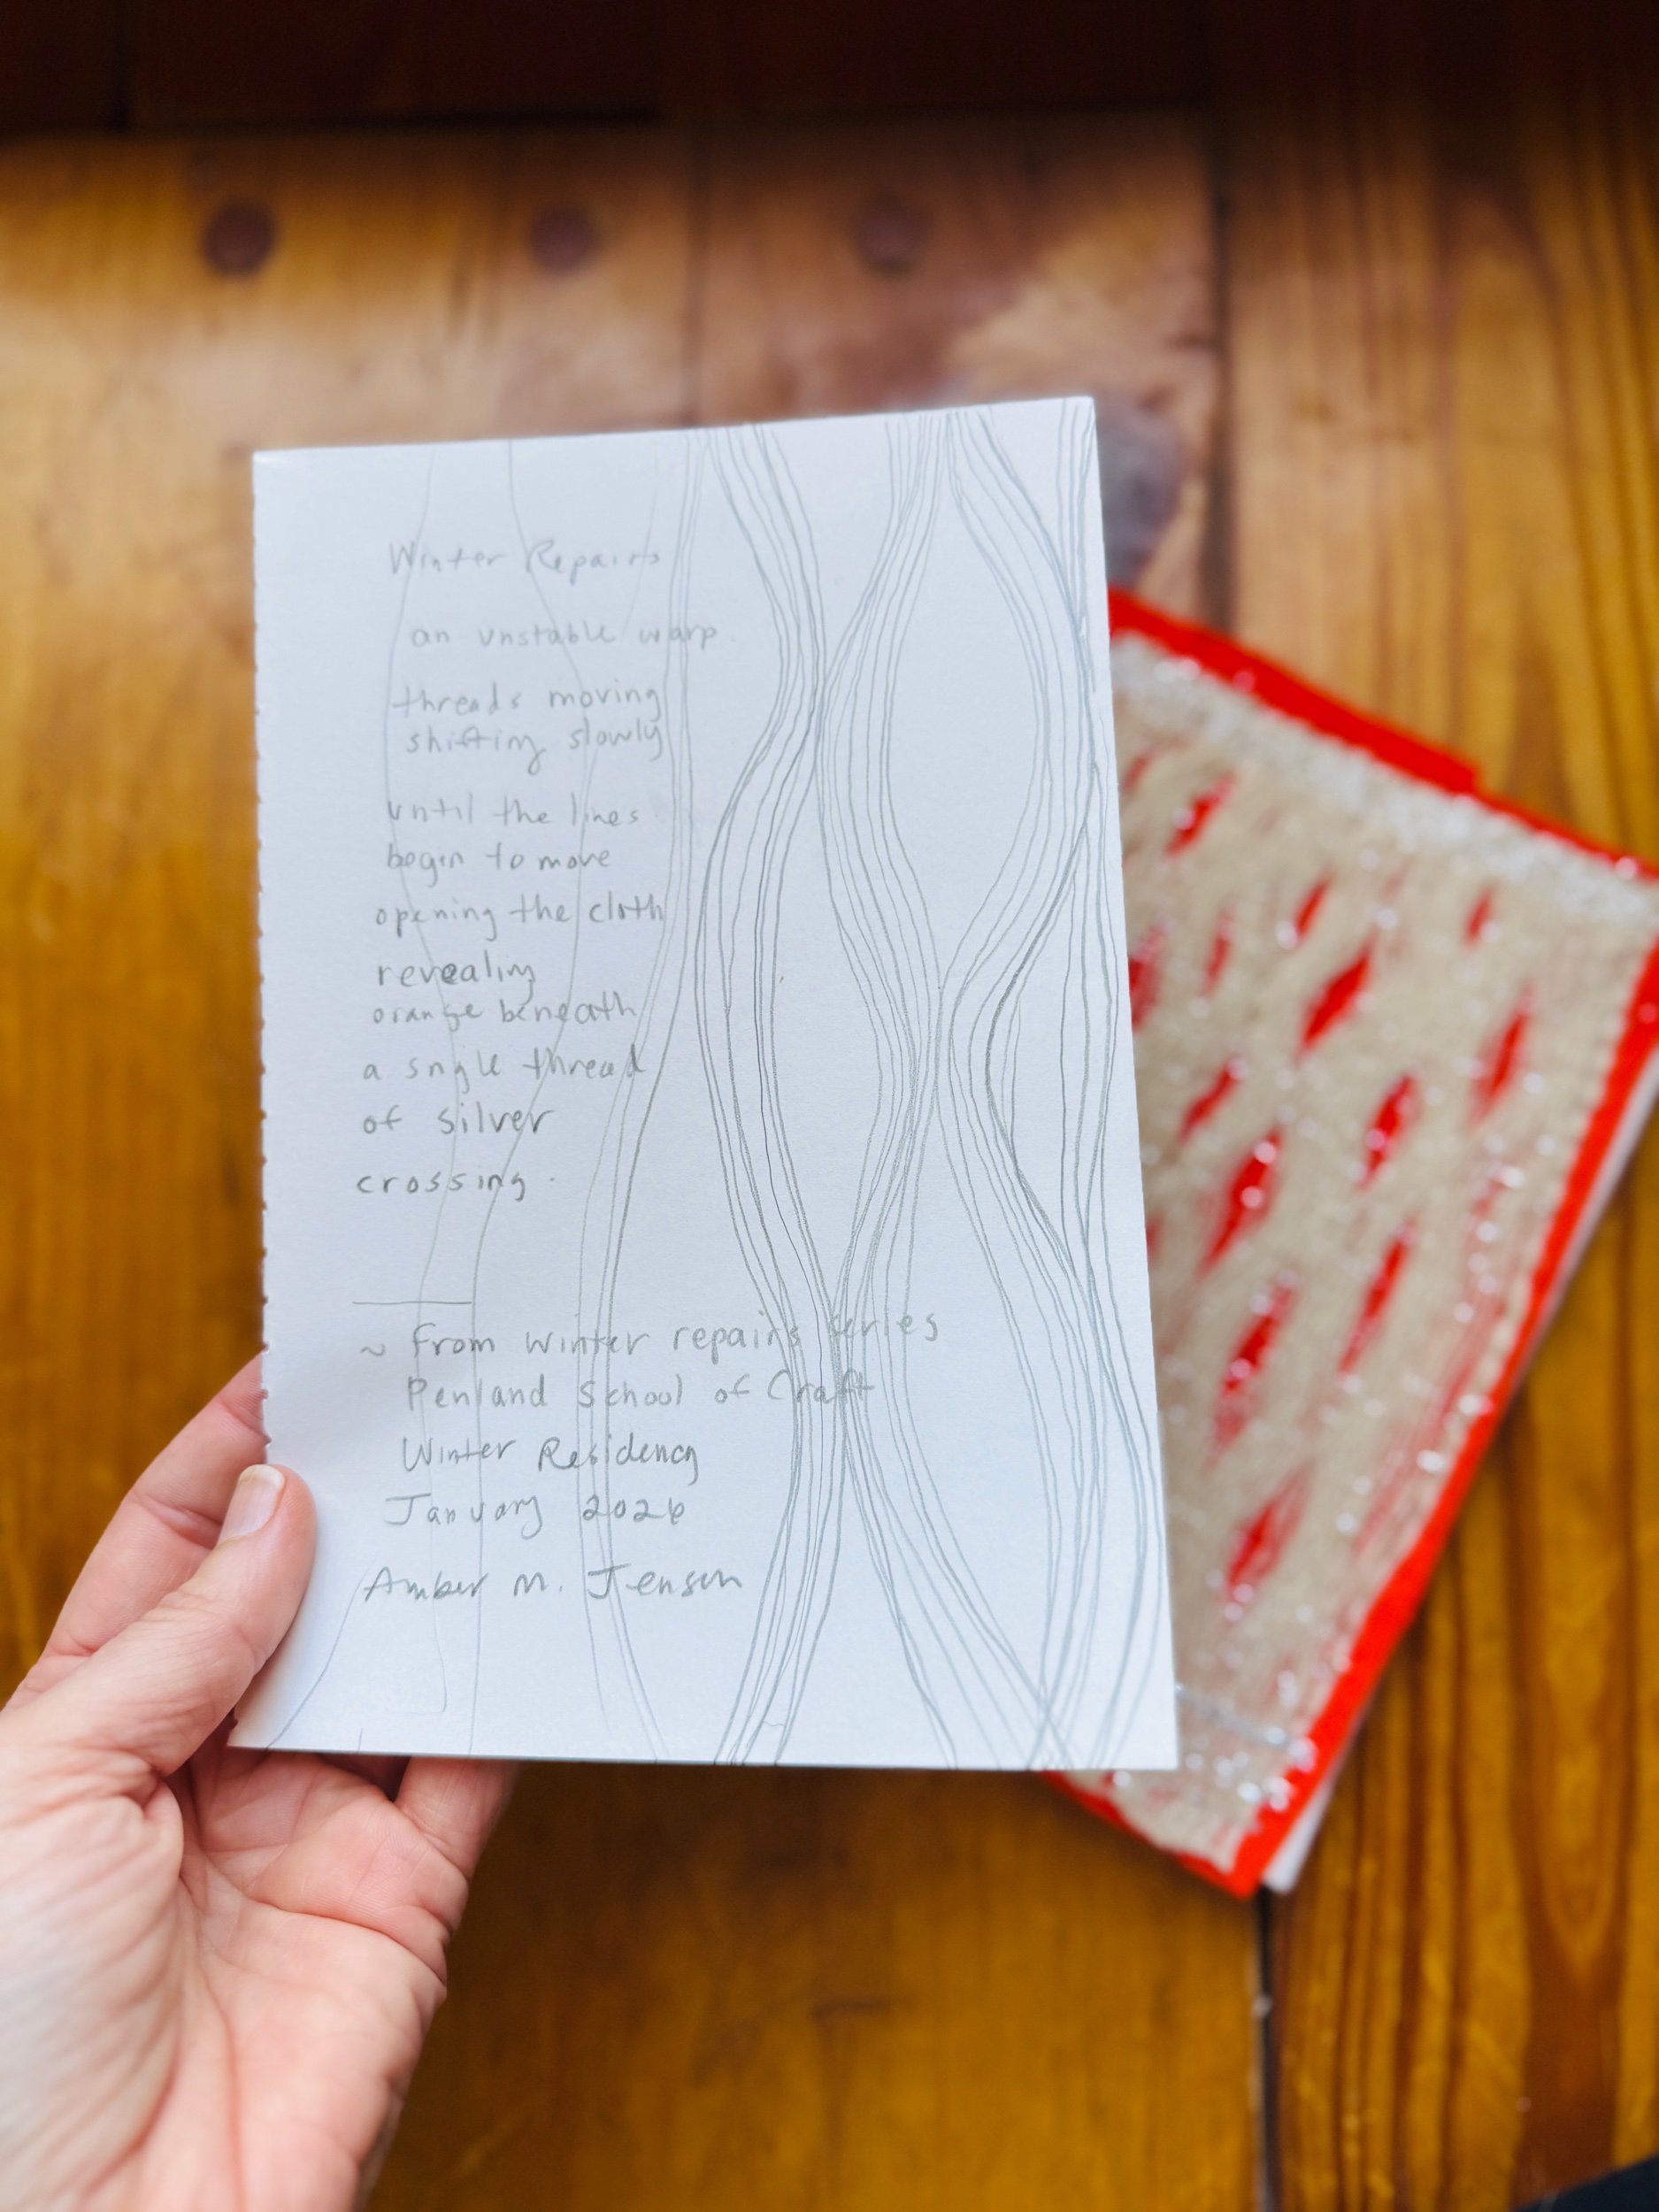 Winter Repairs
an unstable warp.
threads moving
shifting slowly
until the lines
begin to move
opening the cloth
revealing
orange beneath
a sngle thread
of silver
crossing.
~ From winter repairs series
Penland School of Craft
Winter Residency
January 2026
Amber M. Jensen